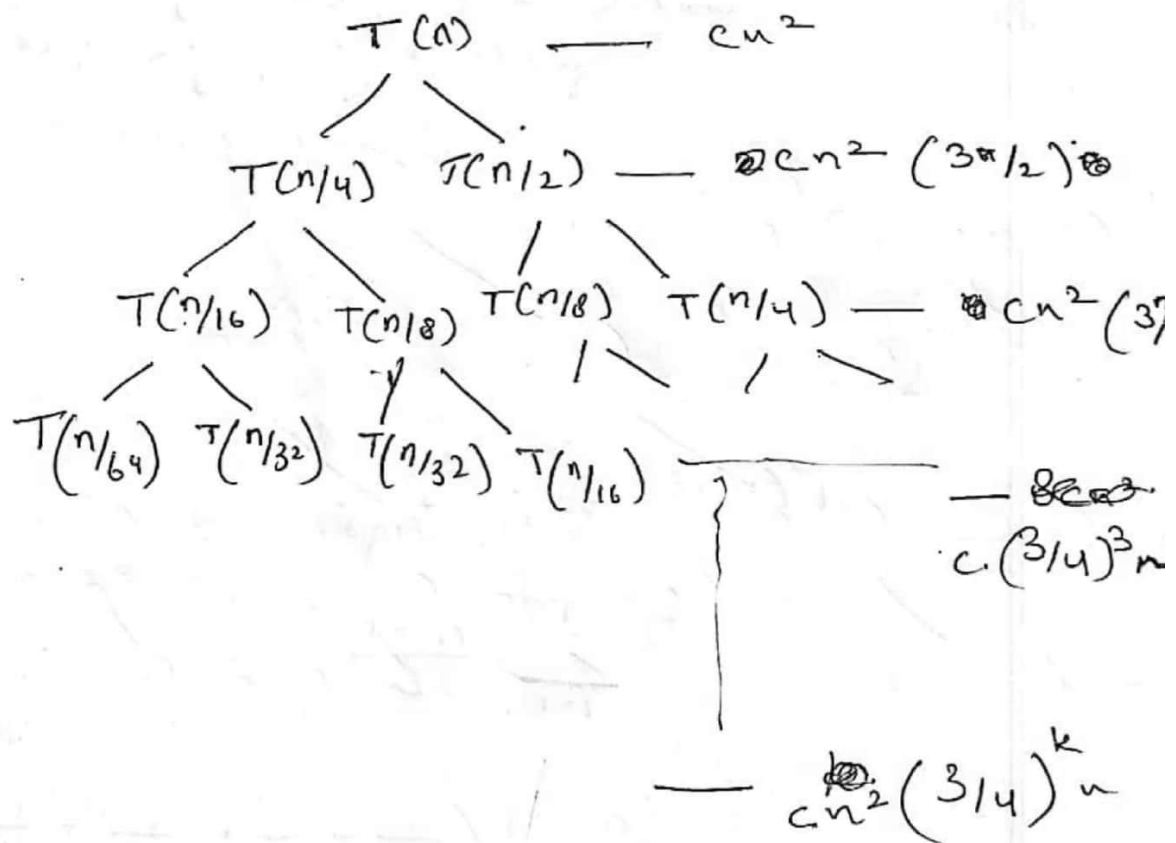 T(n) — cn²
T(n/4) T(n/2) — cn² (3n/2)
T(n/16) T(n/8) T(n/8) T(n/4) — cn² (3
T(n/64) T(n/32) T(n/32) T(n/16) —
c.(3/4)³n
— cn² (3/4)ᵏ n